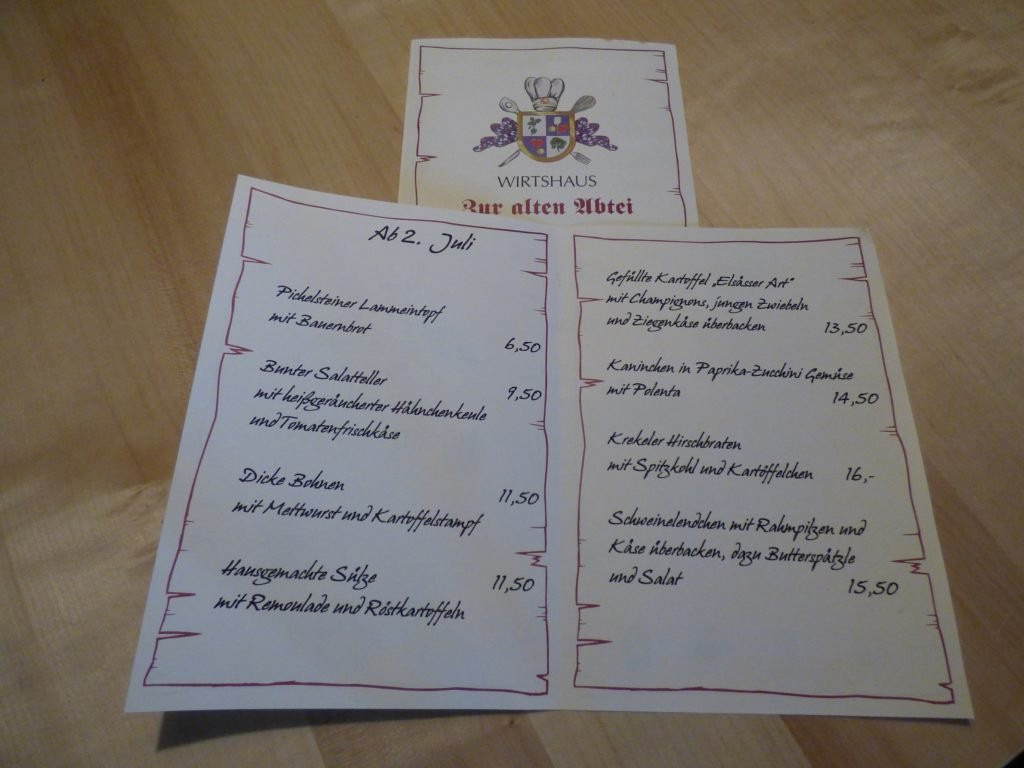 WIRTSHAUS
Zur alten Abtei
Ab 2. Juli
Pichelsteiner Lammeintopf
mit Bauernbrot
6,50
Bunter Salatteller
mit heißgeräucherter Hähnchenkeule 9,50
und Tomatenfrischkäse
Dicke Bohnen
mit Mettwurst und Kartoffelstampf 11,50
Hausgemachte Sülze 11,50
mit Remoulade und Röstkartoffeln
Gefüllte Kartoffel „Elsässer Art"
mit Champignons, jungen Zwiebeln
und Ziegenkäse überbacken 13,50
Kaninchen in Paprika-Zucchini Gemüse
mit Polenta 14,50
Krekeler Hirschbraten
mit Spitzkohl und Kartöffelchen 16,-
Schweinelendchen mit Rahmpilzen und
Käse überbacken, dazu Butterspätzle
und Salat 15,50